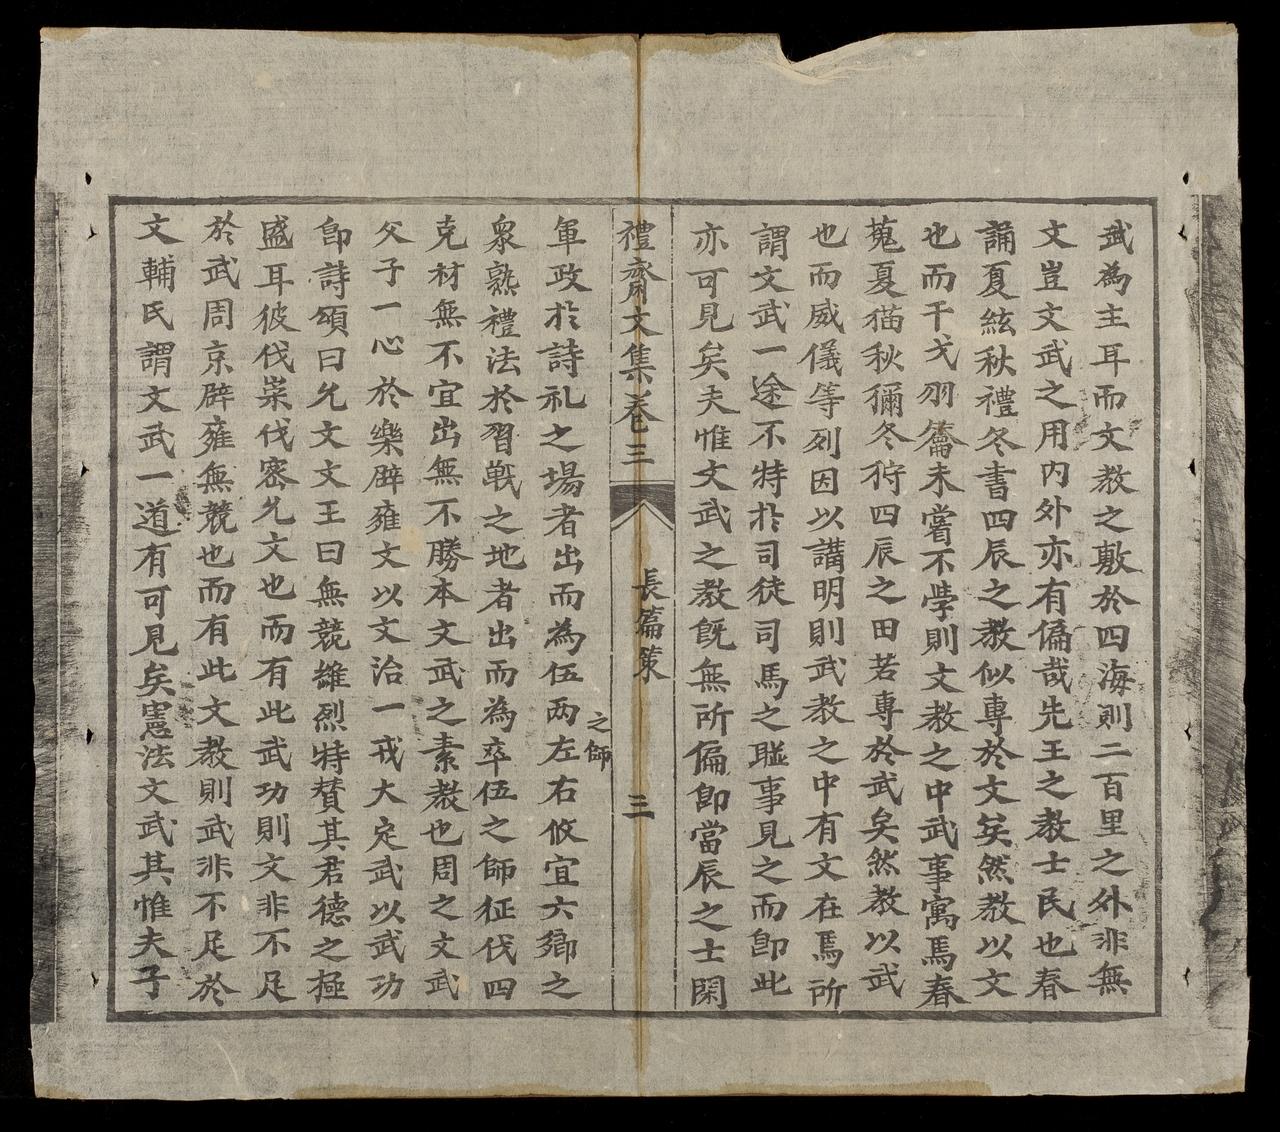 武為主耳而文教之敷於四海則二百里之外非無
文豈文武之用内外亦有偏哉先王之教士民也春
誦夏絃秋禮冬書四辰之教似專於文矣然教以文
也而干戈羽籥未嘗不學則文教之中武事寓焉春
蒐夏猫秋獮冬狩四辰之田若專於武矣然教以武
也而威儀等列因以講明則武教之中有文在焉所
謂文武一途不特扵司徒司馬之聮事見之而即此
亦可見矣夫惟文武之教既無所偏即當辰之士閑
禮齋文集卷三
長篇策
三
軍政扵詩礼之場者出而為伍两左右攸宜六鄉之
之師
衆熟禮法於習戰之地者出而為卒伍之師征伐四
克材無不宜出無不勝本文武之素教也周之文武
父子一心於樂辟雍文以文治一戎大定武以武功
即詩頌曰允文文王曰無競䧺烈特賛其君德之極
盛耳彼伐崇伐密允文也而有此武功則文非不足
於武周京辟雍無競也而有此文教則武非不足於
文輔氏謂文武一道有可見矣憲法文武其惟夫子